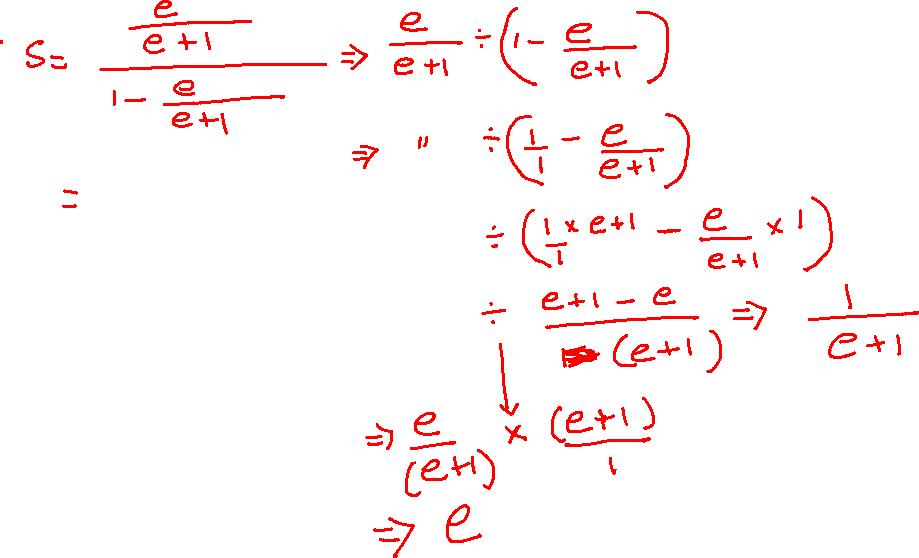 S = (e/(e+1))/(1 - e/(e+1)) ⇒ e/(e+1) ÷ (1 - e/(e+1))
⇒ " ÷ (1/1 - e/(e+1))
=
÷ (1/1 × e+1 - e/(e+1) × 1)
÷ (e+1-e)/(e+1) ⇒ 1/(e+1)
⇒ e/(e+1) × (e+1)/1
⇒ e